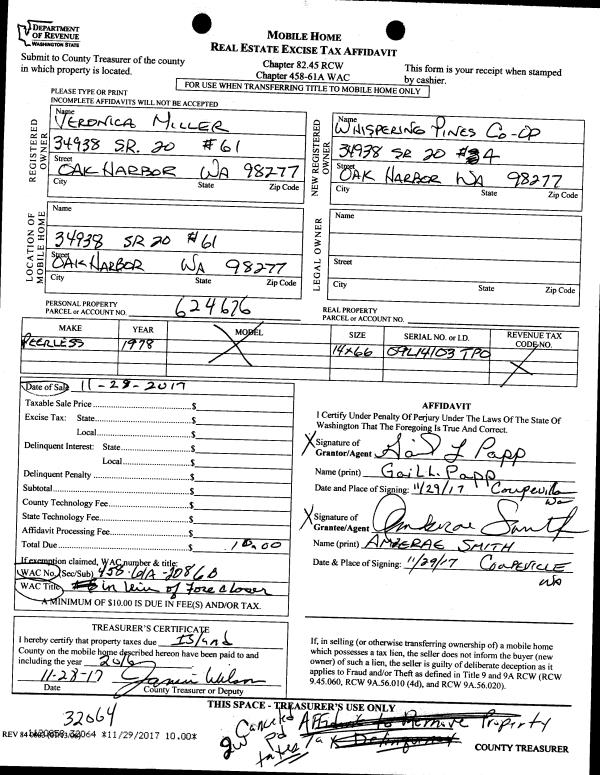 DEPARTMENT
OF REVENUE
WASHINGTON STATE
MOBILE HOME
REAL ESTATE EXCISE TAX AFFIDAVIT
Submit to County Treasurer of the county
in which property is located.
Chapter 82.45 RCW
Chapter 458-61A WAC
This form is your receipt when stamped
by cashier.
FOR USE WHEN TRANSFERRING TITLE TO MOBILE HOME ONLY
PLEASE TYPE OR PRINT
INCOMPLETE AFFIDAVITS WILL NOT BE ACCEPTED
REGISTERED
OWNER
Name
VERONICA MILLER
34938 SR. 20 #61
Street
OAK HARBOR WA 98277
City State Zip Code
NEW REGISTERED
OWNER
Name
WHISPERING PINES CO-OP
34938 SR 20 #4
Street
OAK HARBOR WA 98277
City State Zip Code
LOCATION OF
MOBILE HOME
Name
34938 SR 20 #61
Street
OAK HARBOR WA 98277
City State Zip Code
LEGAL OWNER
Name
Street
City State Zip Code
PERSONAL PROPERTY
PARCEL or ACCOUNT NO. 624676
REAL PROPERTY
PARCEL or ACCOUNT NO.
MAKE YEAR MODEL SIZE SERIAL NO. or I.D. REVENUE TAX
CODE NO.
PEERLESS 1978 14x66 09L14103 TPO
Date of Sale 11-28-2017
Taxable Sale Price $
Excise Tax: State $
Local $
Delinquent Interest: State $
Local $
Delinquent Penalty $
Subtotal $
County Technology Fee $
State Technology Fee $
Affidavit Processing Fee $
Total Due $ 10.00
If exemption claimed, WAC number & title:
WAC No. (Sec/Sub) 458-61A-208 6B
WAC Title in leiu of forecloser
A MINIMUM OF $10.00 IS DUE IN FEE(S) AND/OR TAX.
AFFIDAVIT
I Certify Under Penalty Of Perjury Under The Laws Of The State Of
Washington That The Foregoing Is True And Correct.
X Signature of
Grantor/Agent Gail L Papp
Name (print) GAIL L. PAPP
Date and Place of Signing: 11/29/17 Coupeville
Wa
X Signature of
Grantee/Agent Amberae Smith
Name (print) AMBERAE SMITH
Date & Place of Signing: 11/29/17 COUPEVILLE
WA
TREASURER'S CERTIFICATE
I hereby certify that property taxes due Island
County on the mobile home described hereon have been paid to and
including the year 2016
11-28-17
Date County Treasurer or Deputy
If, in selling (or otherwise transferring ownership of) a mobile home
which possesses a tax lien, the seller does not inform the buyer (new
owner) of such a lien, the seller is guilty of deliberate deception as it
applies to Fraud and/or Theft as defined in Title 9 and 9A RCW (RCW
9.45.060, RCW 9A.56.010 (4d), and RCW 9A.56.020).
THIS SPACE - TREASURER'S USE ONLY
32064
Canceled Affidavit to Remove Property
pd taxes Tax Delinquency
32064 *11/29/2017 10.00*
COUNTY TREASURER